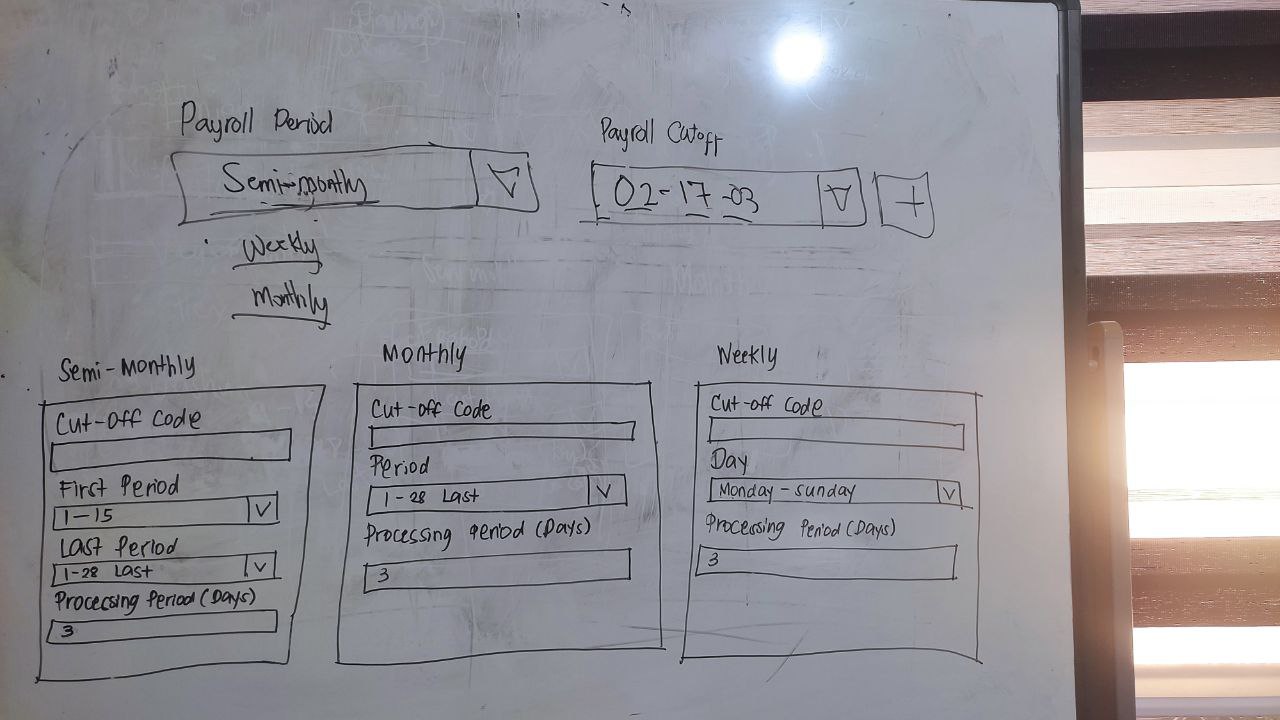 Payroll Period
Semi-monthly
Weekly
Monthly
Payroll Cutoff
02-17-03
+
Semi-Monthly
Cut-off Code
First Period
1-15
Last Period
1-28 Last
Processing Period (Days)
3
Monthly
Cut-off Code
Period
1-28 Last
Processing Period (Days)
3
Weekly
Cut-off Code
Day
Monday - Sunday
Processing Period (Days)
3